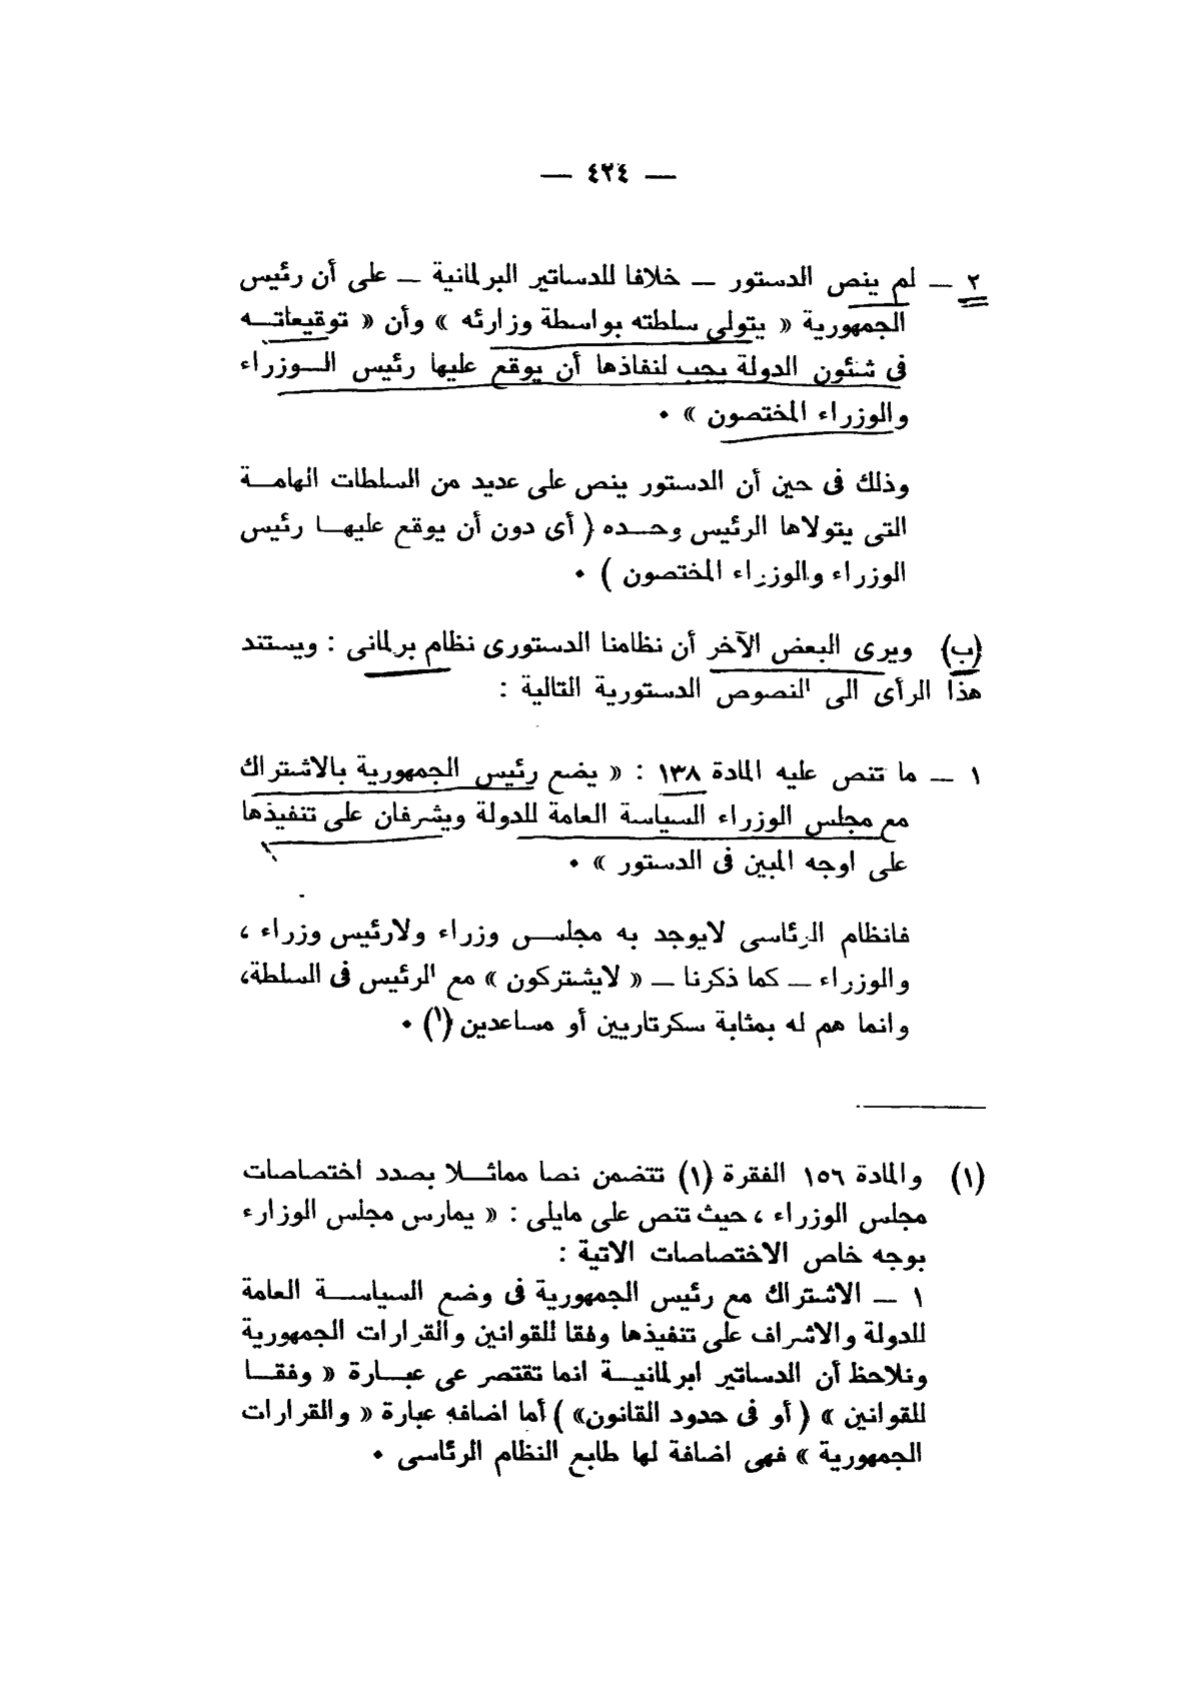 — ٤٢٤ —
٢ — لم ينص الدستور — خلافا للدساتير البرلمانية — على أن رئيس
الجمهورية « يتولى سلطته بواسطة وزارئه » وأن « توقيعاته
فى شئون الدولة يجب لنفاذها أن يوقع عليها رئيس الوزراء
والوزراء المختصون » •
وذلك فى حين أن الدستور ينص على عديد من السلطات الهامة
التى يتولاها الرئيس وحده ( أى دون أن يوقع عليها رئيس
الوزراء والوزراء المختصون ) •
(ب) ويرى البعض الآخر أن نظامنا الدستورى نظام برلمانى : ويستند
هذا الرأى الى النصوص الدستورية التالية :
١ — ما تنص عليه المادة ١٣٨ : « يضع رئيس الجمهورية بالاشتراك
مع مجلس الوزراء السياسة العامة للدولة ويشرفان على تنفيذها
على اوجه المبين فى الدستور » •
فانظام الرئاسى لايوجد به مجلس وزراء ولارئيس وزراء ،
والوزراء — كما ذكرنا — « لايشتركون » مع الرئيس فى السلطة،
وانما هم له بمثابة سكرتاريين أو مساعدين (١) •
(١) والمادة ١٥٦ الفقرة (١) تتضمن نصا مماثلا بصدد اختصاصات
مجلس الوزراء ، حيث تنص على مايلى : « يمارس مجلس الوزارء
بوجه خاص الاختصاصات الاتية :
١ — الاشتراك مع رئيس الجمهورية فى وضع السياسة العامة
للدولة والاشراف على تنفيذها وفقا للقوانين والقرارات الجمهورية
ونلاحظ أن الدساتير ابرلمانية انما تقتصر عى عبارة « وفقا
للقوانين » ( أو فى حدود القانون» ) أما اضافه عبارة « والقرارات
الجمهورية » فهى اضافة لها طابع النظام الرئاسى •